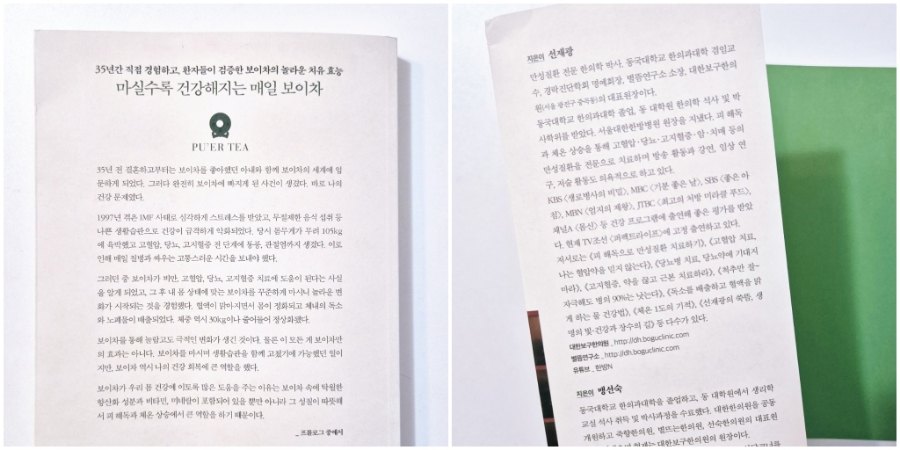 35년간 직접 경험하고, 환자들이 검증한 보이차의 놀라운 치유 효능
마실수록 건강해지는 매일 보이차
PU'ER TEA
35년 전 결혼하고부터는 보이차를 좋아했던 아내와 함께 보이차의 세계에 입
문하게 되었다. 그러다 완전히 보이차에 빠지게 된 사건이 생겼다. 바로 나의
건강 문제였다.
1997년 겪은 IMF 사태로 심각하게 스트레스를 받았고, 무절제한 음식 섭취 등
나쁜 생활습관으로 건강이 급격하게 악화되었다. 당시 몸무게가 무려 105kg
에 육박했고 고혈압, 당뇨, 고지혈증 전 단계에 통풍, 관절염까지 생겼다. 이로
인해 매일 질병과 싸우는 고통스러운 시간을 보내야 했다.
그러던 중 보이차가 비만, 고혈압, 당뇨, 고지혈증 치료에 도움이 된다는 사실
을 알게 되었고, 그 후 내 몸 상태에 맞는 보이차를 꾸준하게 마시니 놀라운 변
화가 시작되는 것을 경험했다. 혈액이 맑아지면서 몸이 정화되고 체내의 독소
와 노폐물이 배출되었다. 체중 역시 30kg이나 줄어들어 정상화됐다.
보이차를 통해 놀랍고도 극적인 변화가 생긴 것이다. 물론 이 모든 게 보이차만
의 효과는 아니다. 보이차를 마시며 생활습관을 함께 고쳤기에 가능했던 일이
지만, 보이차 역시 나의 건강 회복에 큰 역할을 했다.
보이차가 우리 몸 건강에 이토록 많은 도움을 주는 이유는 보이차 속에 탁월한
항산화 성분과 비타민, 미네랄이 포함되어 있을 뿐만 아니라 그 성질이 따뜻해
서 피 해독과 체온 상승에서 큰 역할을 하기 때문이다.
_ 프롤로그 중에서
지은이 선재광
만성질환 전문 한의학 박사, 동국대학교 한의과대학 겸임교
수, 경락진단학회 명예회장, 별뜸연구소 소장, 대한보구한의
원(서울 광진구 중곡동)의 대표원장이다.
동국대학교 한의과대학 졸업, 동 대학원 한의학 석사 및 박
사학위를 받았다. 서울대한한방병원 원장을 지냈다. 피 해독
과 체온 상승을 통해 고혈압·당뇨·고지혈증·암·치매 등의
만성질환을 전문으로 치료하며 방송 활동과 강연, 임상 연
구, 저술 활동도 의욕적으로 하고 있다.
KBS 〈생로병사의 비밀〉, MBC 〈기분 좋은 날〉, SBS 〈좋은 아
침〉, MBN 〈엄지의 제왕〉, JTBC 〈최고의 처방 미라클 푸드〉,
채널A 〈몸신〉 등 건강 프로그램에 출연해 좋은 평가를 받았
다. 현재 TV조선 〈퍼펙트라이프〉에 고정 출연하고 있다.
저서로는 《피 해독으로 만성질환 치료하기》, 《고혈압 치료,
나는 혈압약을 믿지 않는다》, 《당뇨병 치료, 당뇨약에 기대지
마라》, 《고지혈증, 약을 끊고 근본 치료하라》, 《척추만 잘~
자극해도 병의 90%는 낫는다》, 《독소를 배출하고 혈액을 맑
게 하는 몸 건강법》, 《체온 1도의 기적》, 《선재광의 쑥뜸, 생
명의 빛-건강과 장수의 길》 등 다수가 있다.
대한보구한의원 _ http://dh.boguclinic.com
별뜸연구소 _ http://dh.boguclinic.com
유튜브 _ 한방N
지은이 맹선숙
동국대학교 한의과대학을 졸업하고, 동 대학원에서 생리학
교실 석사 취득 및 박사과정을 수료했다. 대한한의원을 공동
개원하고 죽향한의원, 별뜨는한의원, 선숙한의원의 대표원
대한보구한의원의 원장이다.